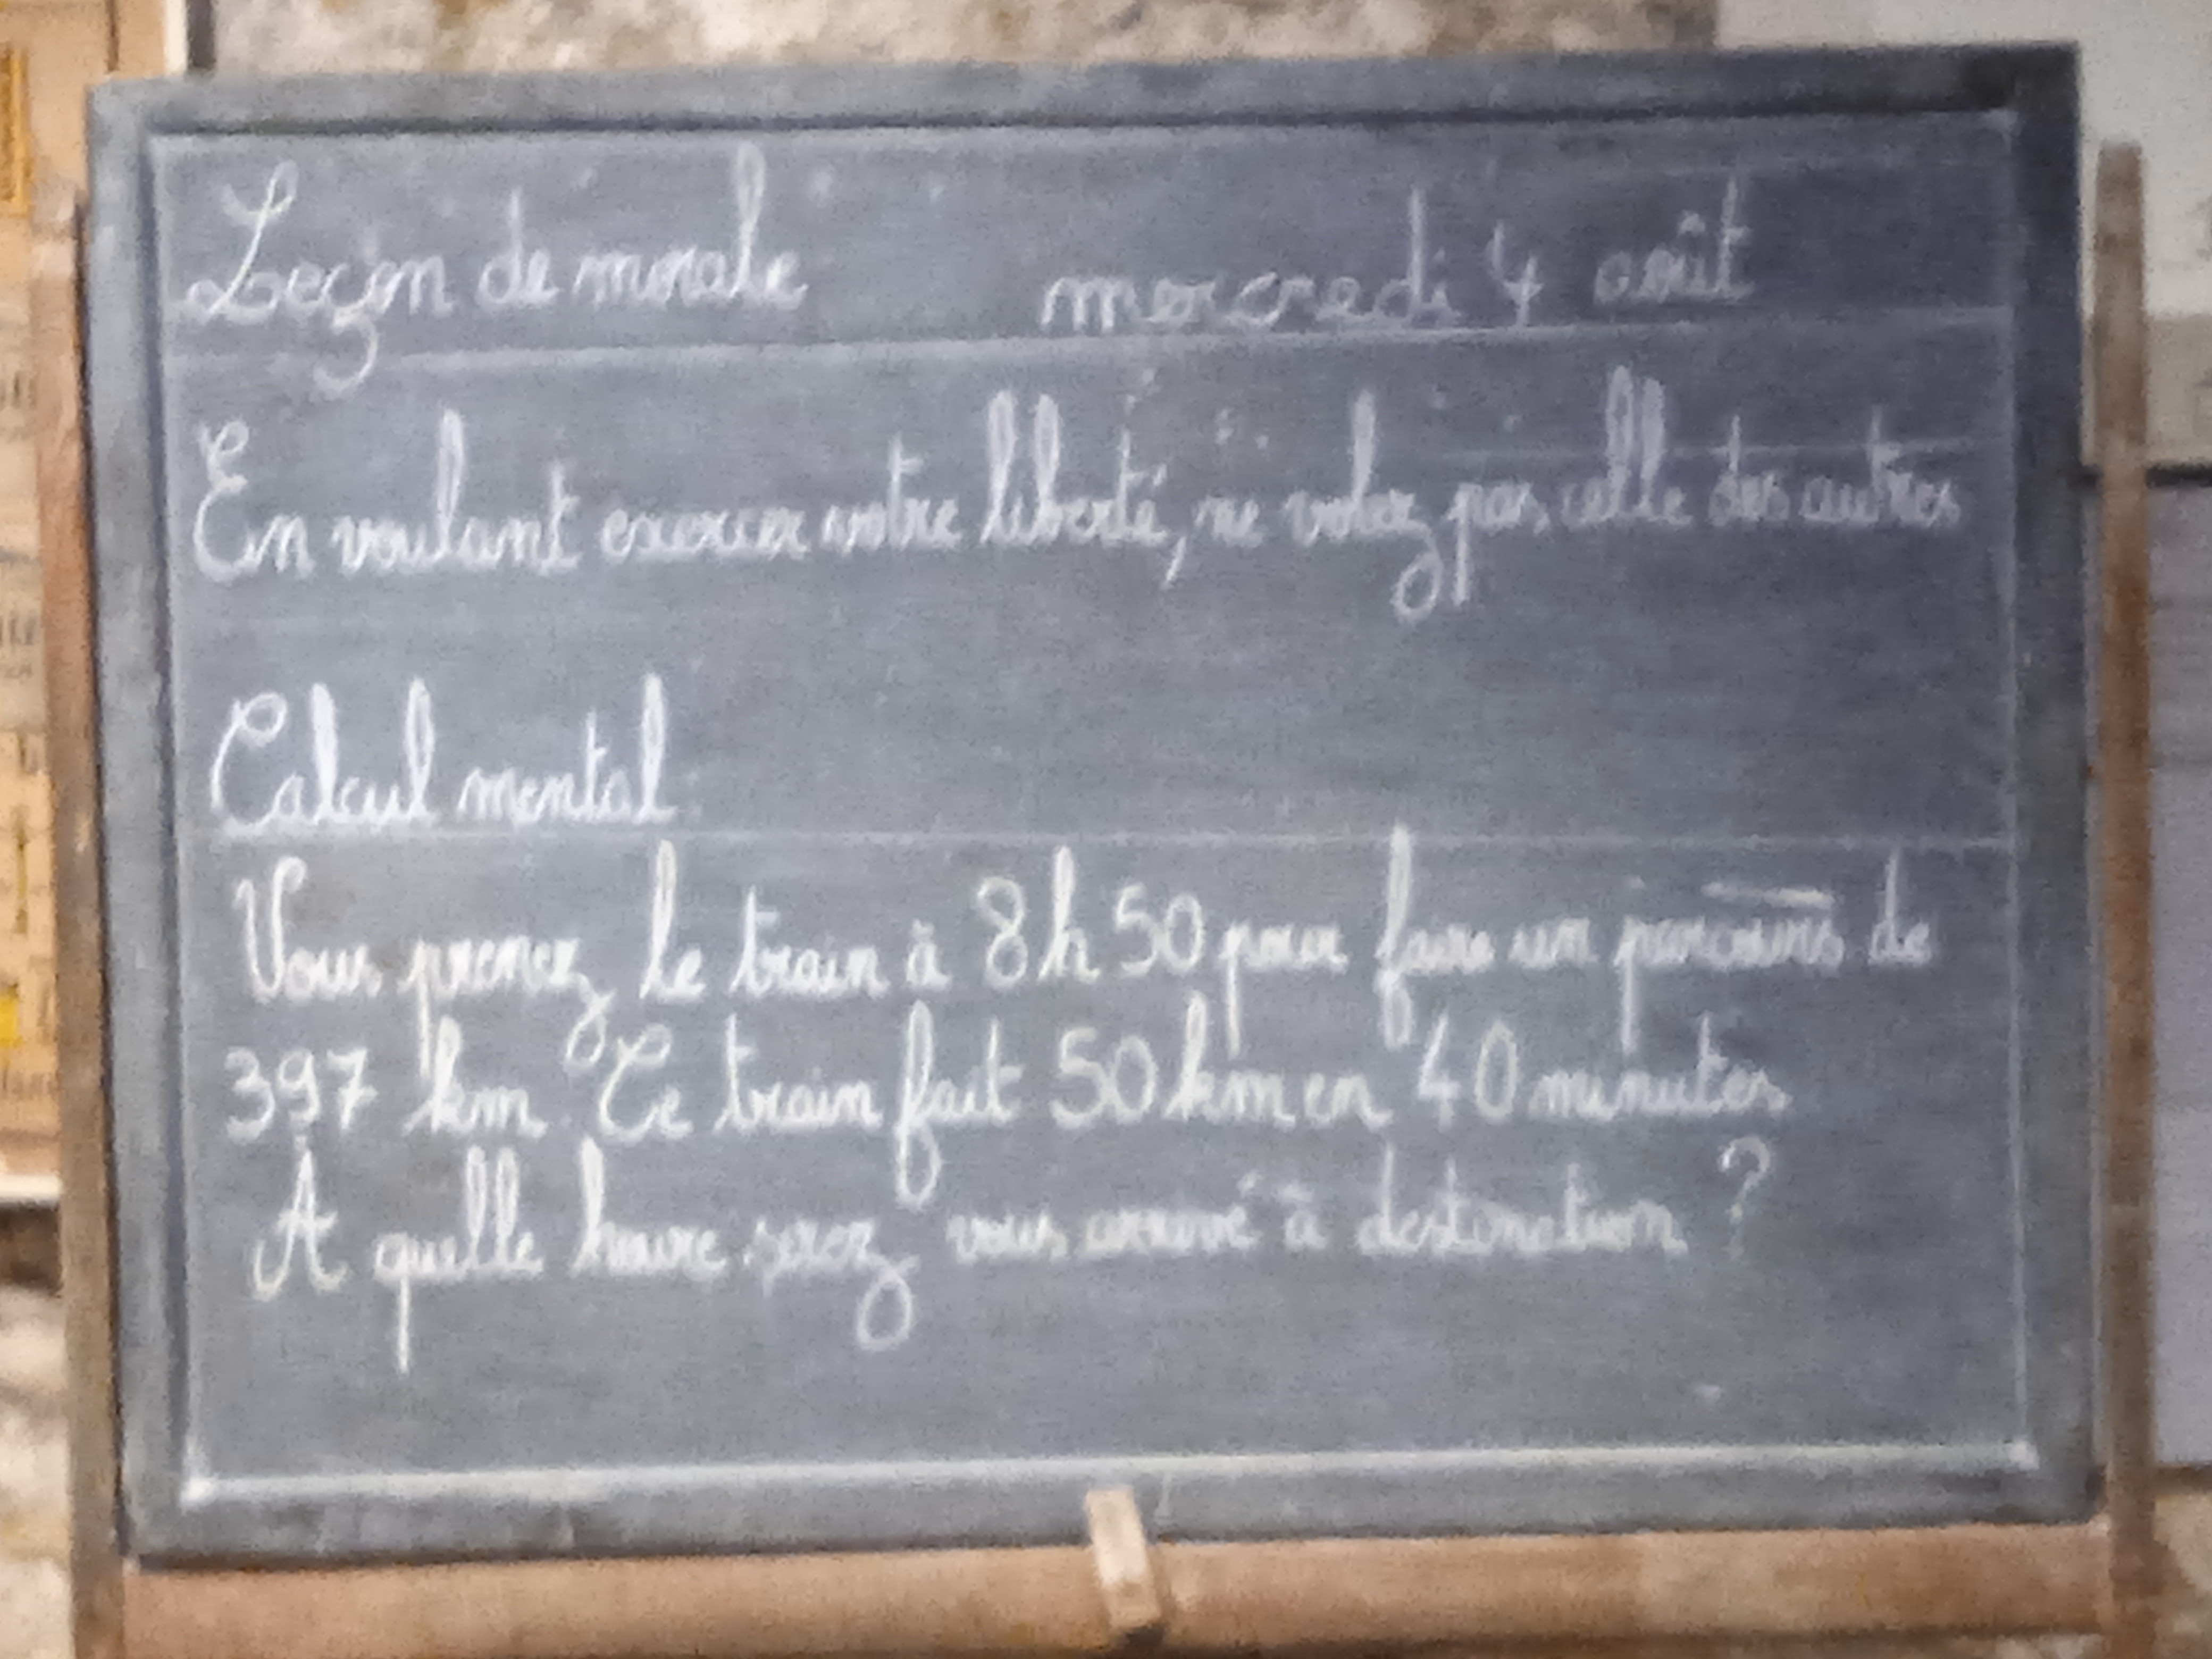 Leçon de morale mercredi 4 août
En voulant exercer votre liberté, ne volez pas celle des autres
Calcul mental
Vous prenez le train à 8h50 pour faire un parcours de
397 km. Ce train fait 50 km en 40 minutes
À quelle heure serez vous arrivé à destination ?